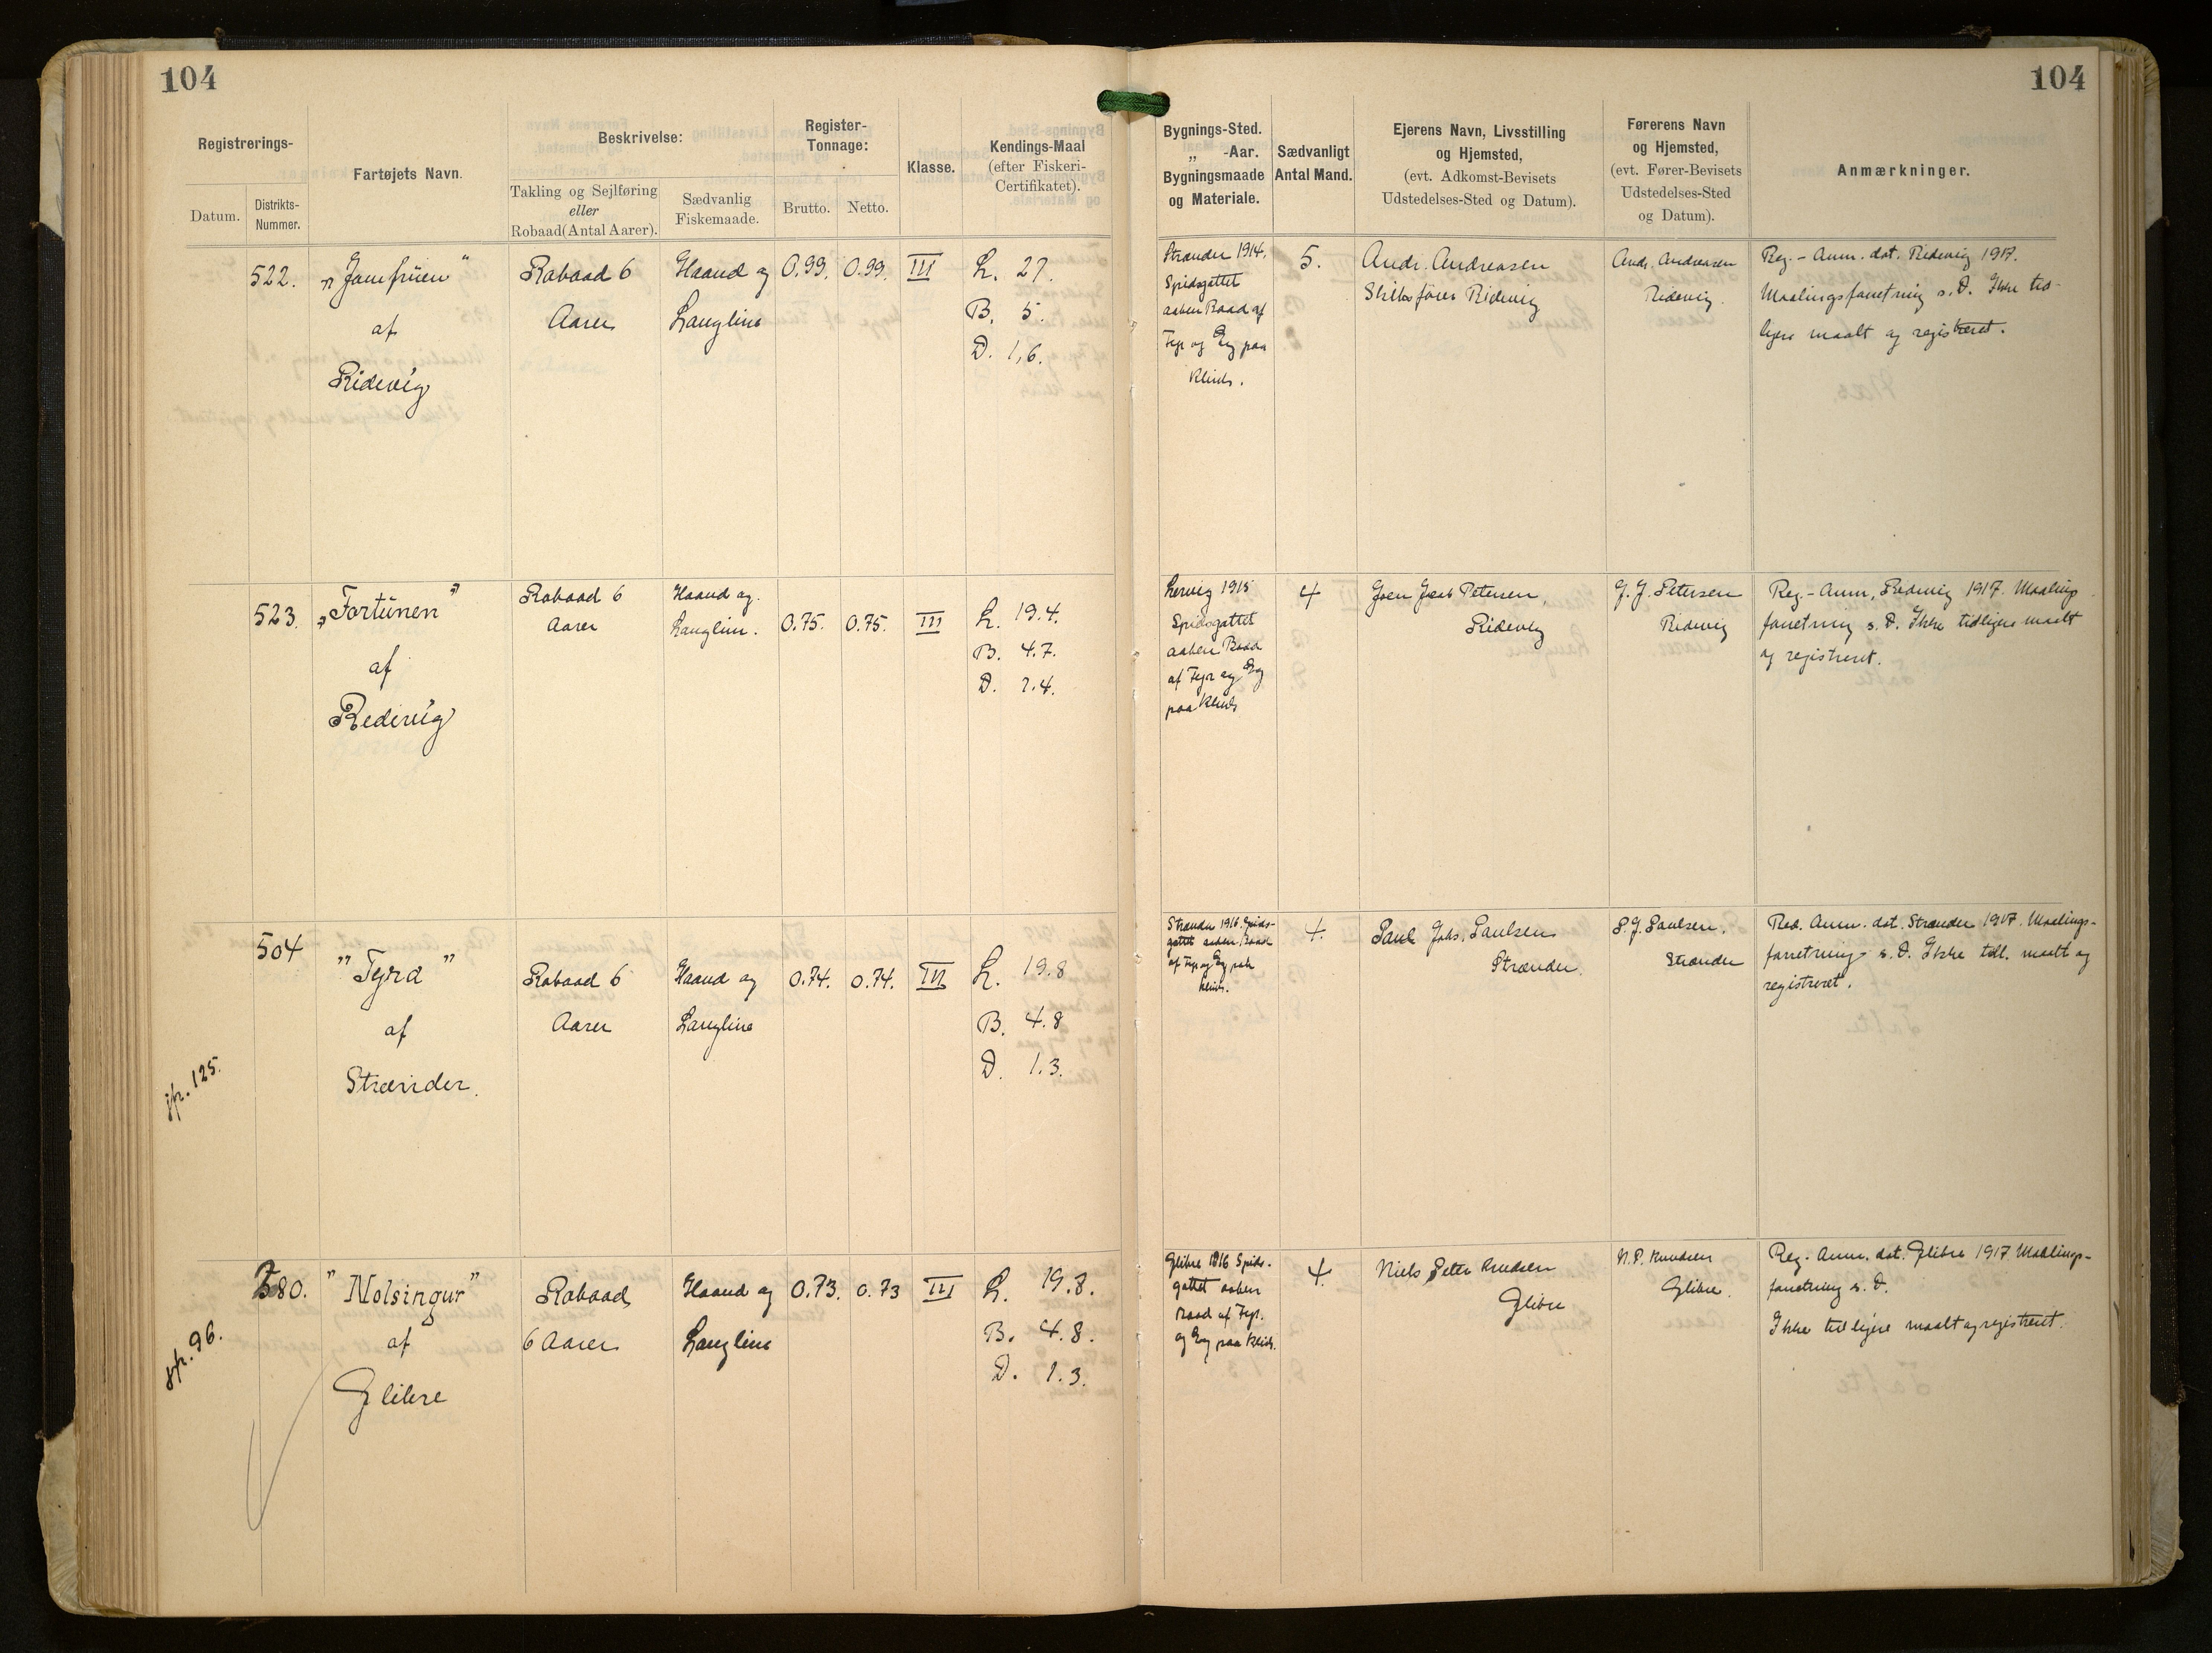 104
104
Registrerings-
Datum.
Distrikts-
Nummer.
Fartøjets Navn.
Beskrivelse:
Takling og Sejlføring
eller
Robaad (Antal Aarer).
Sædvanlig
Fiskemaade.
Register-
Tonnage:
Brutto.
Netto.
Klasse.
Kendings-Maal
(efter Fiskeri-
Certifikatet).
Bygnings-Sted.
„ -Aar.
Bygningsmaade
og Materiale.
Sædvanligt
Antal Mand.
Ejerens Navn, Livsstilling
og Hjemsted,
(evt. Adkomst-Bevisets
Udstedelses-Sted og Datum).
Førerens Navn
og Hjemsted,
(evt. Fører-Bevisets
Udstedelses-Sted
og Datum).
Anmærkninger.
522.
„Jomfruen"
af
Ridevig
Robaad 6
Aarer
Haand og
Langline
0.99.
0.99.
III
L. 27.
B. 5.
D. 1,6.
Strænder 1914.
Spidsgattet
aaben Baad af
Fyr og Eg paa
Klink.
5.
Andr. Andreasen
Skibsfører Ridevig
Andr. Andreasen
Ridevig.
Reg.- Anm. dat. Ridevig 1917.
Maalingsforretning s. D. Ikke tid-
ligere maalt og registreret.
523.
„Fortunen"
af
Redevig
Robaad 6
Aarer
Haand og.
Langline.
0.75.
0.75.
III
L. 19.4.
B. 4.7.
D. 1.4.
Lervig 1915
Spidsgattet
aaben Baad
af Fyr og Eg
paa Klink
4
Joen Jeab Petersen,
Ridevig
J. J. Petersen
Ridevig
Reg.- Anm, Ridevig 1917. Maalings
forretning s. D. Ikke tidligere maalt
og registreret.
504
"Tyra"
af
Strænder.
Robaad 6
Aarer
Haand og
Langline
0.74.
0.74.
III
L. 19.8
B. 4.8
D. 1.3.
Strænder 1916. Spids-
gattet aaben Baad
af Fyr og Eg paa
Klink.
4.
Paul Johs. Paulsen
Strænder.
P. J. Paulsen.
Strænder
Reg. Anm. dat. Strænder 1917. Maalings-
forretning s. D. Ikke tidl. maalt og
registreret.
jfr. 125.
580.
"Nolsingur"
af
Glibre
Robaad
6 Aarer
Haand og
Langline
0.73.
0.73
III
L. 19.8.
B. 4.8.
D. 1.3.
Glibre 1916 Spids-
gattet aaben
Baad af Fyr.
og Eg paa Klink.
4
Niels Peter Knudsen
Glibre
N. P. Knudsen
Glibre.
Reg- Anm. dat. Glibre 1917 Maalings-
forretning s. D.
Ikke tidligere maalt og registreret.
jfr. 96.